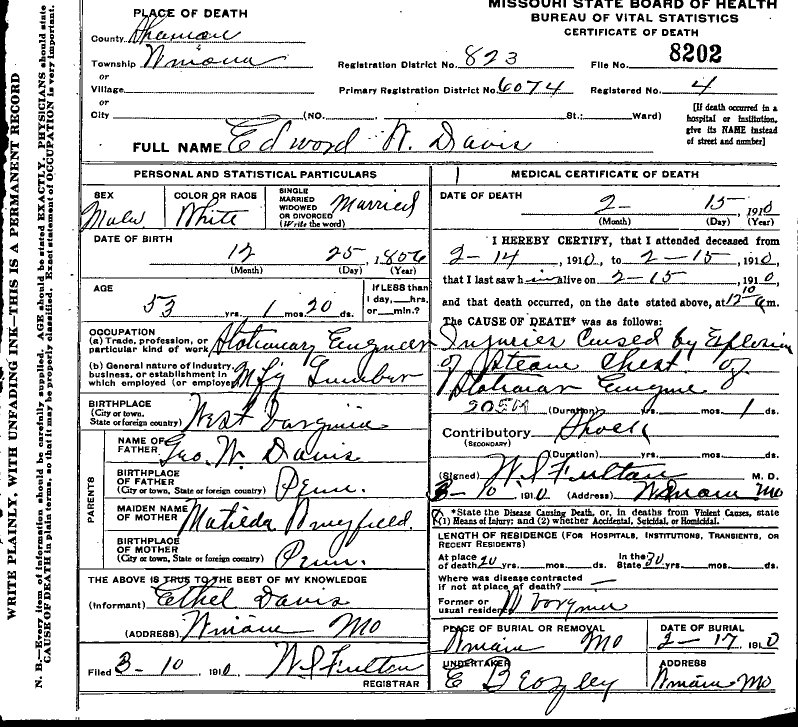 MISSOURI STATE BOARD OF HEALTH
BUREAU OF VITAL STATISTICS
CERTIFICATE OF DEATH
PLACE OF DEATH
County
Township Winona
or
Village
or
City (NO. St.; Ward)
Registration District No. 823 File No. 8202
Primary Registration District No. 6074 Registered No. 4
[If death occurred in a
hospital or institution,
give its NAME instead
of street and number]
FULL NAME Edword W. Davis
PERSONAL AND STATISTICAL PARTICULARS
SEX Male
COLOR OR RACE White
SINGLE
MARRIED
WIDOWED
OR DIVORCED
(Write the word) Married
DATE OF BIRTH
12 25, 1856
(Month) (Day) (Year)
AGE
53 yrs. 1 mos. 20 ds.
If LESS than
1 day, hrs.
or min.?
OCCUPATION
(a) Trade, profession, or
particular kind of work Stationary Engineer
(b) General nature of Industry,
business, or establishment in
which employed (or employer) Mfg Lumber
BIRTHPLACE
(City or town,
State or foreign country) West Vorginia
PARENTS
NAME OF
FATHER Geo. W. Davis
BIRTHPLACE
OF FATHER
(City or town, State or foreign country) Penn.
MAIDEN NAME
OF MOTHER Matilda
BIRTHPLACE
OF MOTHER
(City or town, State or foreign country) Penn.
THE ABOVE IS TRUE TO THE BEST OF MY KNOWLEDGE
(Informant) Ethel Davis
(ADDRESS) Winona Mo
Filed 3-10, 1910 W S Fulton
REGISTRAR
MEDICAL CERTIFICATE OF DEATH
DATE OF DEATH
2 - 15, 1910
(Month) (Day) (Year)
I HEREBY CERTIFY, that I attended deceased from
2-14, 1910, to 2-15, 1910,
that I last saw him alive on 2-15, 1910,
and that death occurred, on the date stated above, at 12 10 a m.
The CAUSE OF DEATH* was as follows:
Injuries Caused by Explosion
of Steam Chest of
Stationar Engine
(Duration) yrs. mos. 1 ds.
Contributory Shock
(SECONDARY)
(Duration) yrs. mos. ds.
(Signed) W. S Fulton M. D.
3-10 1910 (Address) Winona Mo
*State the Disease Causing Death, or, in deaths from Violent Causes, state
(1) Means of Injury; and (2) whether Accidental, Suicidal, or Homicidal.
LENGTH OF RESIDENCE (FOR HOSPITALS, INSTITUTIONS, TRANSIENTS, OR
RECENT RESIDENTS)
At place
of death 20 yrs. mos. ds. In the
State 30 yrs. mos. ds.
Where was disease contracted
if not at place of death?
Former or
usual residence
PLACE OF BURIAL OR REMOVAL
Winona Mo
DATE OF BURIAL
2-17, 1910
UNDERTAKER
ADDRESS
Winona Mo
WRITE PLAINLY, WITH UNFADING INK—THIS IS A PERMANENT RECORD
N. B.—Every item of information should be carefully supplied. AGE should be stated EXACTLY. PHYSICIANS should state
CAUSE OF DEATH in plain terms, so that it may be properly classified. Exact statement of OCCUPATION is very important.